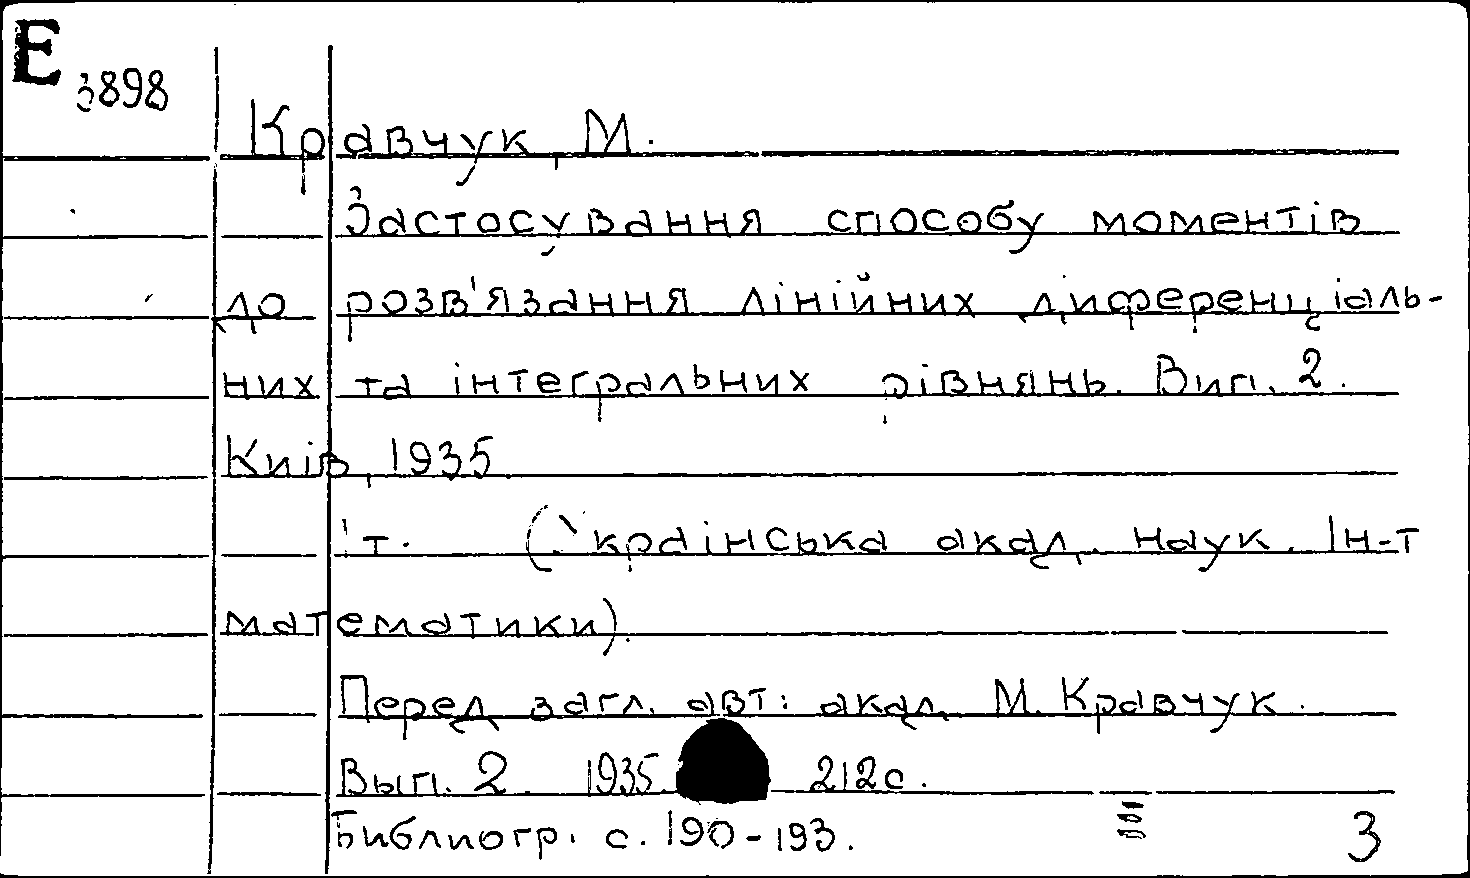 Е
3898
Кравчук, М.
Застосування способу моментів
до розв'язання лінійних диференціаль-
них та інтегральних рівнянь. Вип. 2.
Київ, 1935.
т. (Українська акад. наук. Ін-т
математики).
Перед загл. авт: акад. М. Кравчук.
Вып. 2. 1935 212с.
Библиогр. с. 190-193.
3